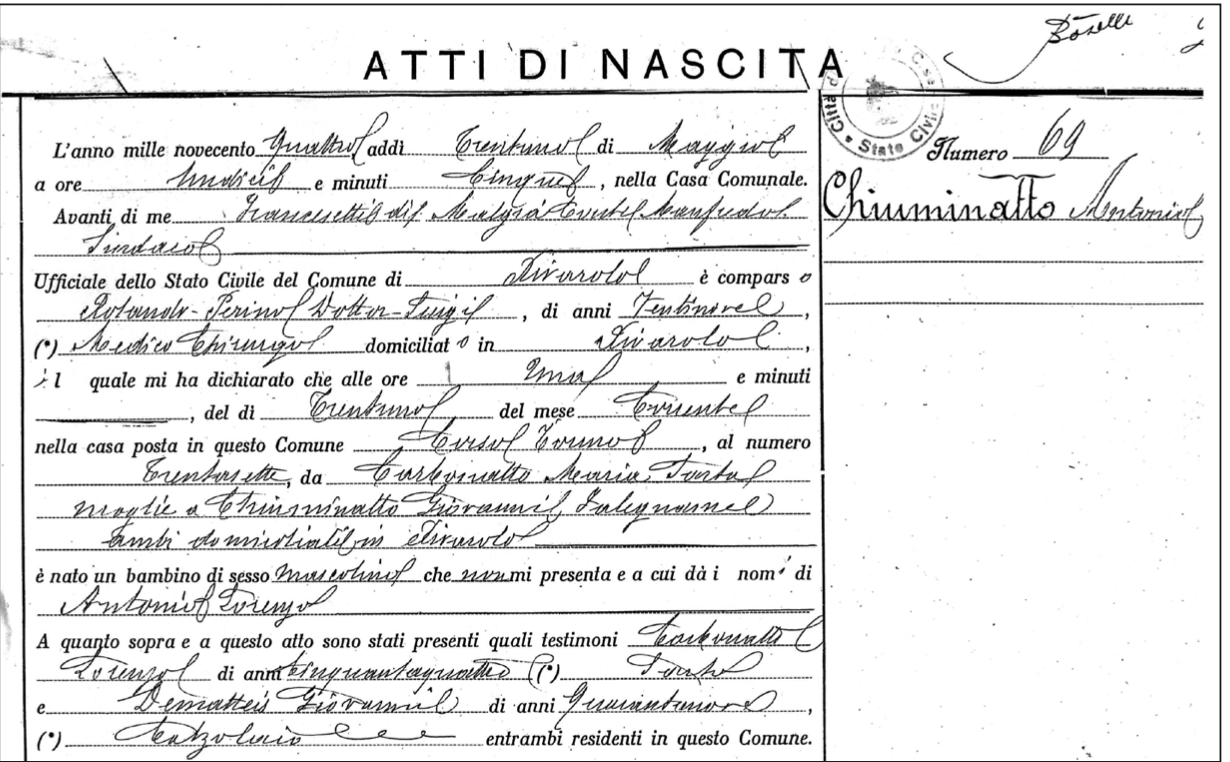 Boselli
ATTI DI NASCITA
Stato Civile
Numero 69
Chiuminatto Antonio
L'anno mille novecento Quattro addì Trentuno di Maggio
a ore Undici e minuti Cinque, nella Casa Comunale.
Avanti di me Francesetti di Conte Manfredo
Sindaco
Ufficiale dello Stato Civile del Comune di Rivarolo è comparso
Rolando-Perino Dottor Luigi, di anni Ventinove,
(*) Medico Chirurgo domiciliato in Rivarolo,
il quale mi ha dichiarato che alle ore Una e minuti
, del dì Trentuno del mese Corrente
nella casa posta in questo Comune Corso Torino, al numero
Trentasette, da Maria Sarta
moglie a Chiuminatto Giovanni, Falegname
ambi domiciliati in Rivarolo
è nato un bambino di sesso Mascolino che non mi presenta e a cui dà i nomi di
Antonio Lorenzo
A quanto sopra e a questo atto sono stati presenti quali testimoni
Lorenzo di anni Cinquantaquattro (*) Sarto
e Dematteis Giovanni di anni,
(*) Calzolaio entrambi residenti in questo Comune.